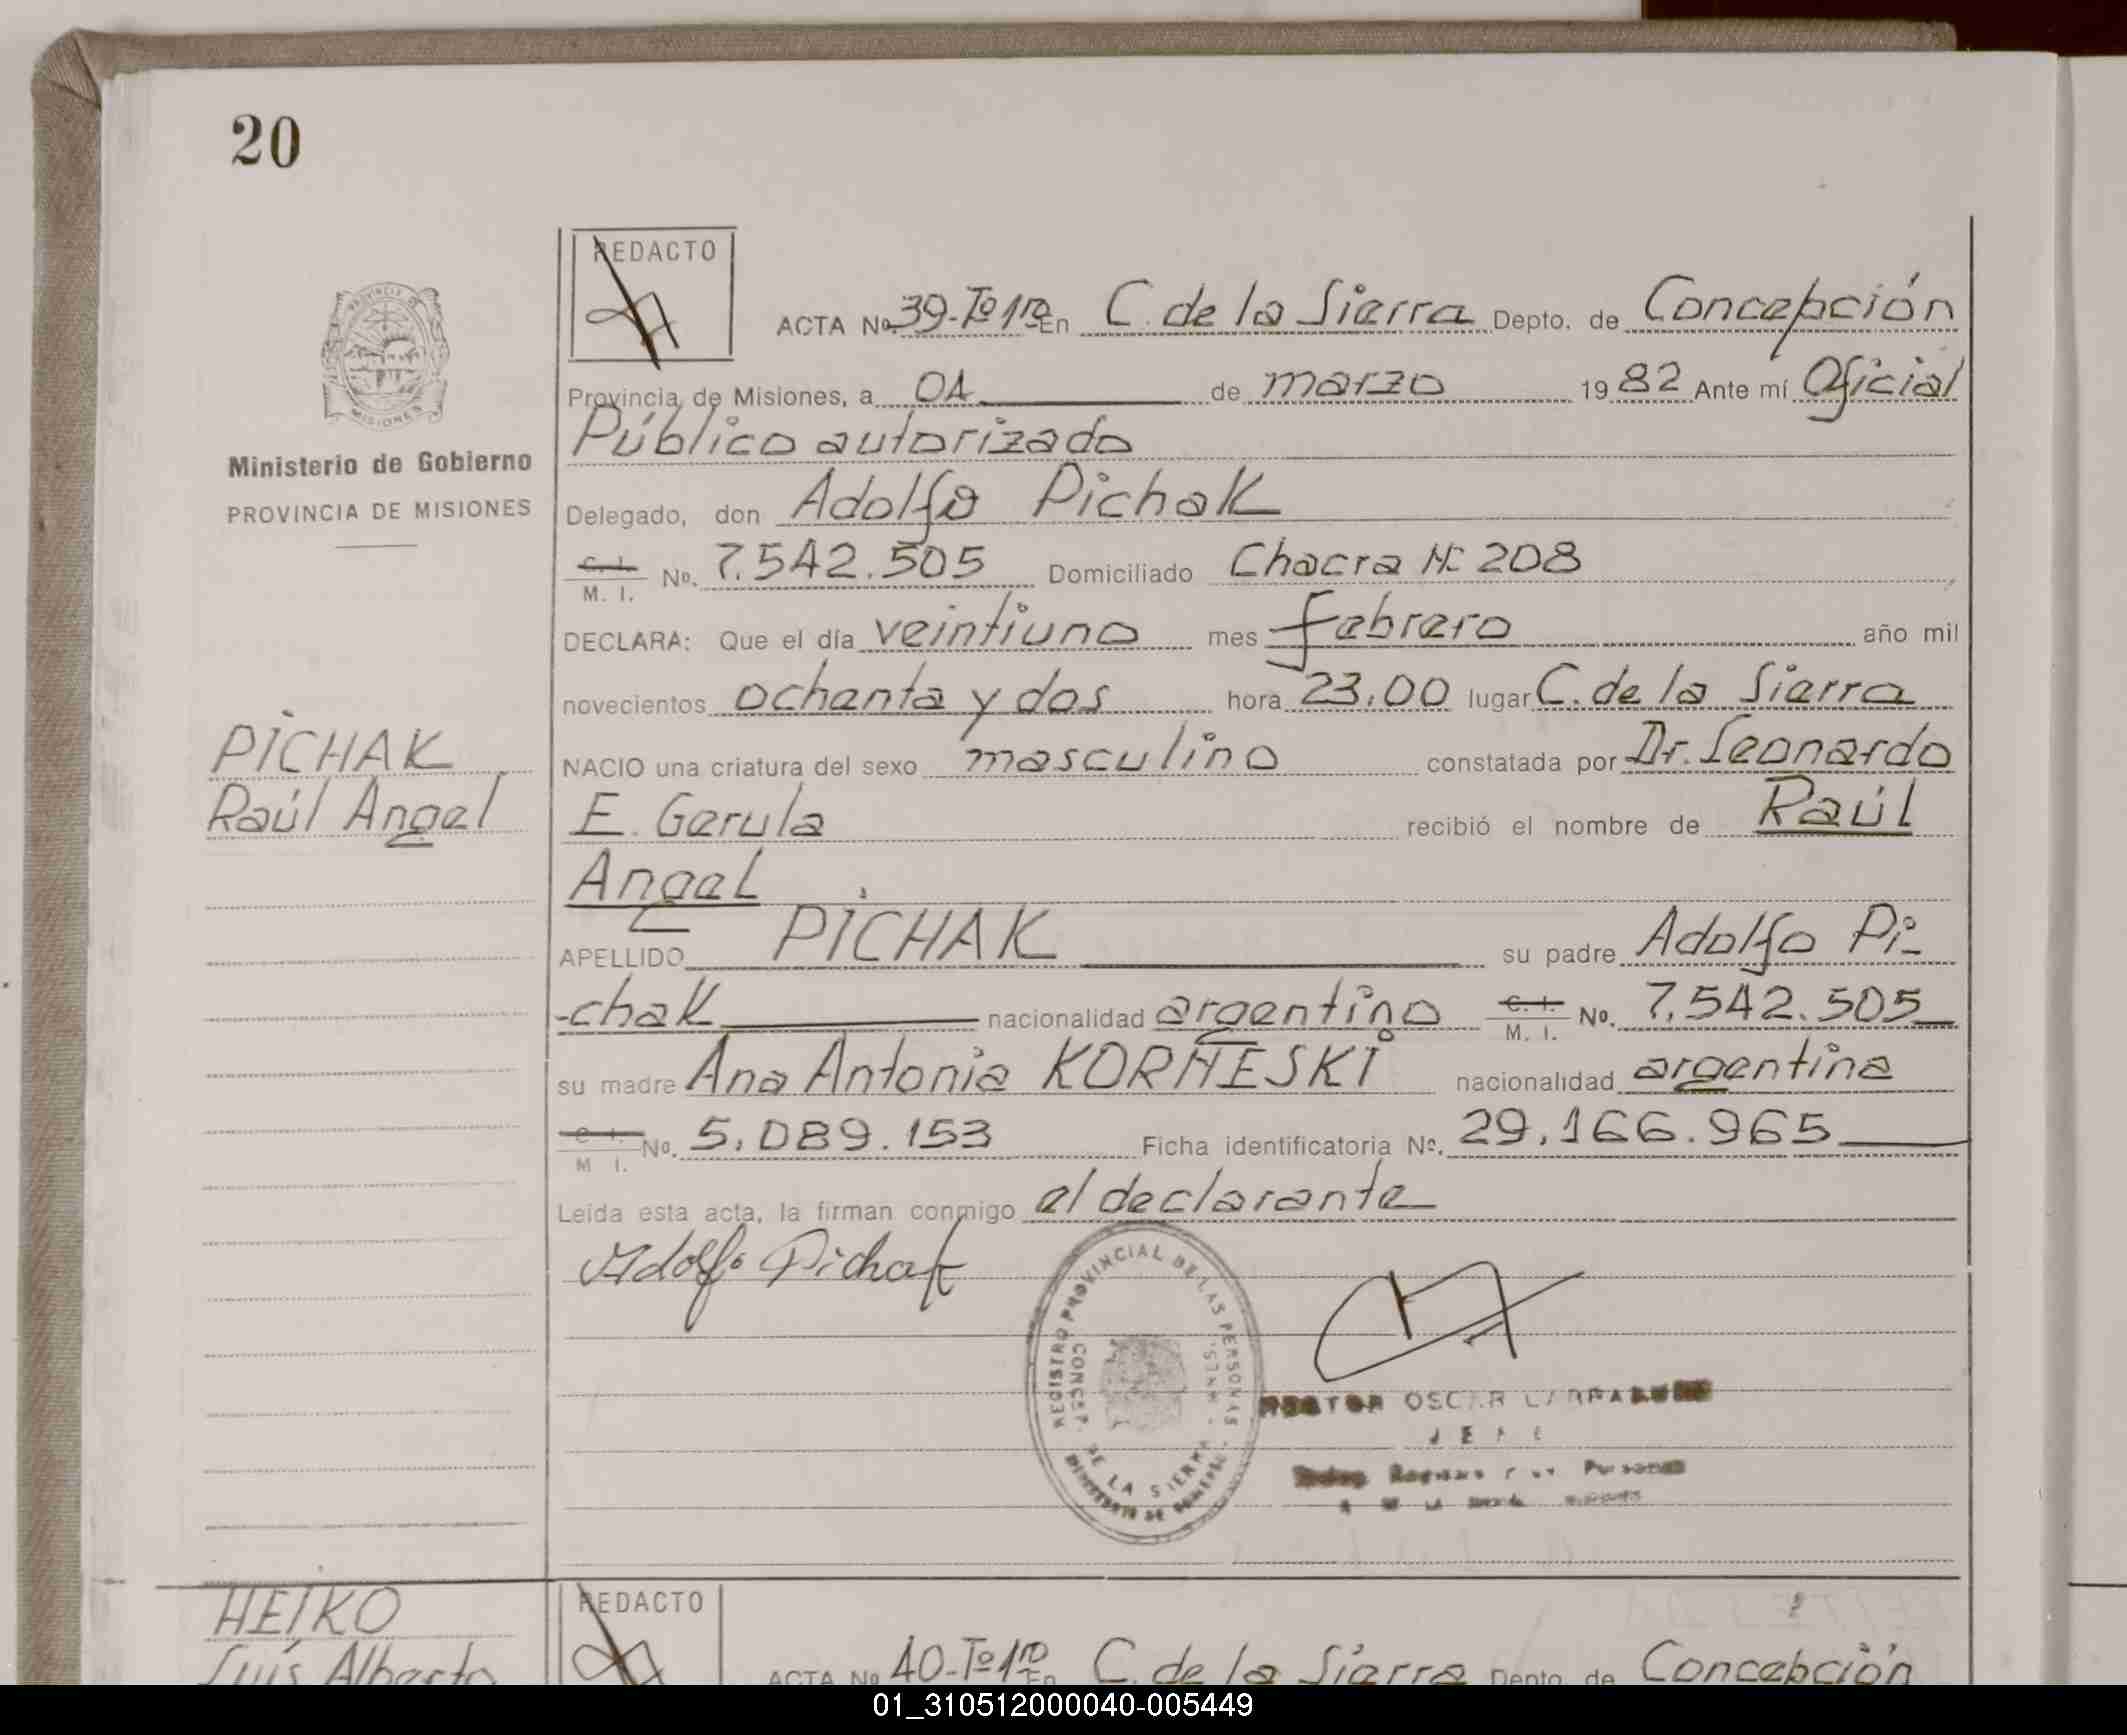 20
REDACTO
ACTA No. 39-Tº 1ro En C. de la Sierra Depto. de Concepción
PROVINCIA DE MISIONES
Provincia de Misiones, a 04 de marzo 1982 Ante mí Oficial
Público autorizado
Ministerio de Gobierno
PROVINCIA DE MISIONES
Delegado, don Adolfo Pichak
C. I. M. I. No. 7.542.505 Domiciliado Chacra Nº 208
DECLARA: Que el día veintiuno mes febrero año mil
novecientos ochenta y dos hora 23,00 lugar C. de la Sierra
PICHAK
Raúl Angel
NACIO una criatura del sexo masculino constatada por Dr. Leonardo
E. Gerula recibió el nombre de Raúl
Angel
APELLIDO PICHAK su padre Adolfo Pi-
-chak nacionalidad argentino C. I. M. I. No. 7.542.505
su madre Ana Antonia KORNESKI nacionalidad argentina
C. I. M I. No. 5.089.153 Ficha identificatoria Nº. 29.166.965
Leída esta acta, la firman conmigo el declarante
Adolfo Pichak
REGISTRO PROVINCIAL DE LAS PERSONAS
CONCEP. DE LA SIERRA - MNES.
MINISTERIO DE GOBIERNO
OSCAR
JEFE
HEIKO
Luís Alberto
REDACTO
ACTA No 40-Tº 1ro En C. de la Sierra Depto. de Concepción
01_310512000040-005449